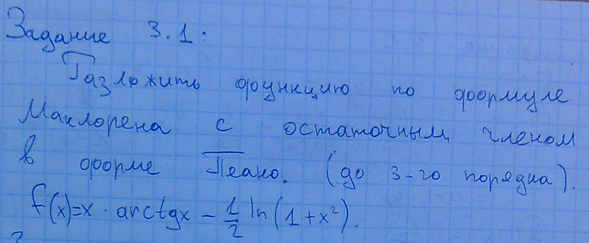 Задание 3.1:
Разложить функцию по формуле
Маклорена с остаточным членом
в форме Пеано. (до 3-го порядка).
f(x)=x · arctgx - 1/2 ln(1+x²).